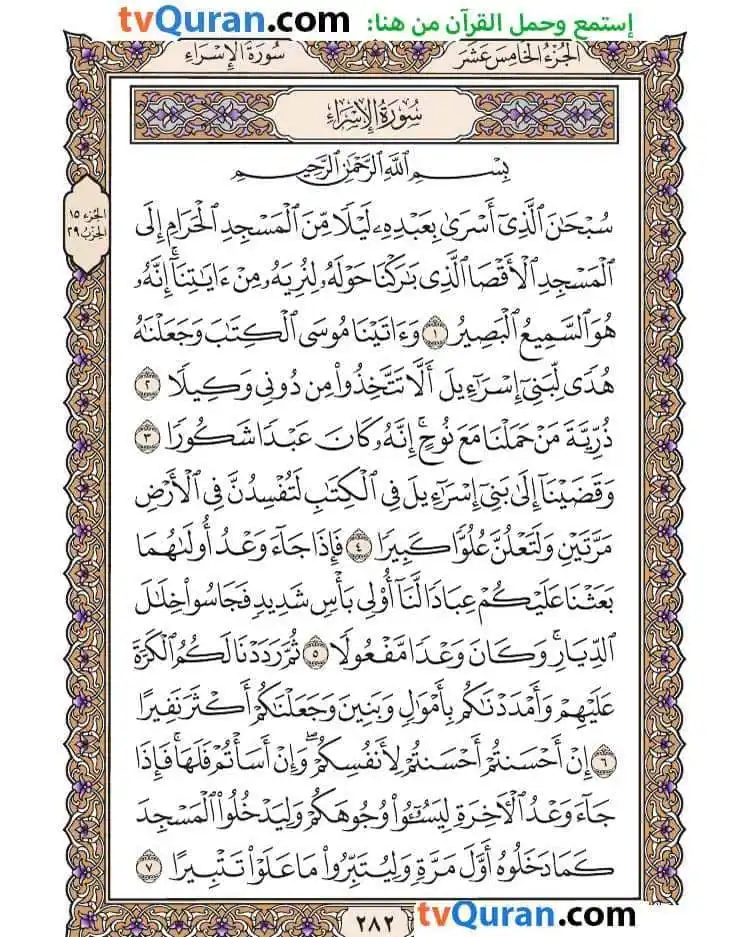 إستمع وحمل القرآن من هنا: tvQuran.com
الجزء الخامس عشر
سورة الإسراء
سُورَةُ الإِسْرَاءِ
بِسْمِ ٱللَّهِ ٱلرَّحْمَٰنِ ٱلرَّحِيمِ
الجزء ١٥
الحزب ٢٩
سُبْحَٰنَ ٱلَّذِىٓ أَسْرَىٰ بِعَبْدِهِۦ لَيْلًا مِّنَ ٱلْمَسْجِدِ ٱلْحَرَامِ إِلَى
ٱلْمَسْجِدِ ٱلْأَقْصَا ٱلَّذِى بَٰرَكْنَا حَوْلَهُۥ لِنُرِيَهُۥ مِنْ ءَايَٰتِنَآ ۚ إِنَّهُۥ
هُوَ ٱلسَّمِيعُ ٱلْبَصِيرُ ١ وَءَاتَيْنَا مُوسَى ٱلْكِتَٰبَ وَجَعَلْنَٰهُ
هُدًى لِّبَنِىٓ إِسْرَٰٓءِيلَ أَلَّا تَتَّخِذُوا۟ مِن دُونِى وَكِيلًا ٢
ذُرِّيَّةَ مَنْ حَمَلْنَا مَعَ نُوحٍ ۚ إِنَّهُۥ كَانَ عَبْدًا شَكُورًا ٣
وَقَضَيْنَآ إِلَىٰ بَنِىٓ إِسْرَٰٓءِيلَ فِى ٱلْكِتَٰبِ لَتُفْسِدُنَّ فِى ٱلْأَرْضِ
مَرَّتَيْنِ وَلَتَعْلُنَّ عُلُوًّا كَبِيرًا ٤ فَإِذَا جَآءَ وَعْدُ أُولَىٰهُمَا
بَعَثْنَا عَلَيْكُمْ عِبَادًا لَّنَآ أُو۟لِى بَأْسٍ شَدِيدٍ فَجَاسُوا۟ خِلَٰلَ
ٱلدِّيَارِ ۚ وَكَانَ وَعْدًا مَّفْعُولًا ٥ ثُمَّ رَدَدْنَا لَكُمُ ٱلْكَرَّةَ
عَلَيْهِمْ وَأَمْدَدْنَٰكُم بِأَمْوَٰلٍ وَبَنِينَ وَجَعَلْنَٰكُمْ أَكْثَرَ نَفِيرًا
٦ إِنْ أَحْسَنتُمْ أَحْسَنتُمْ لِأَنفُسِكُمْ ۖ وَإِنْ أَسَأْتُمْ فَلَهَا ۚ فَإِذَا
جَآءَ وَعْدُ ٱلْءَاخِرَةِ لِيَسُۥٓـُٔوا۟ وُجُوهَكُمْ وَلِيَدْخُلُوا۟ ٱلْمَسْجِدَ
كَمَا دَخَلُوهُ أَوَّلَ مَرَّةٍ وَلِيُتَبِّرُوا۟ مَا عَلَوْا۟ تَتْبِيرًا ٧
٢٨٢
tvQuran.com